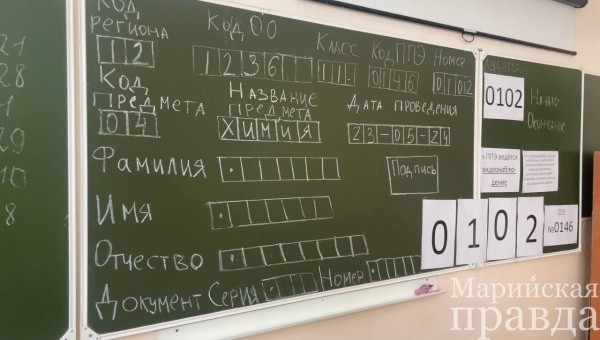 21
28
1
29
10
8
Код региона
12
Код ОО
1236
Класс
11
Код ППЭ
0146
Номер
0102
Код предмета
04
Название предмета
химия
Дата проведения
23-05-24
Фамилия
Подпись
Имя
Отчество
Документ Серия Номер
0102
Начало
Окончание
в ППЭ ведётся
видеонаблю-
дение
0102
ППЭ
№0146
Марийская
правда